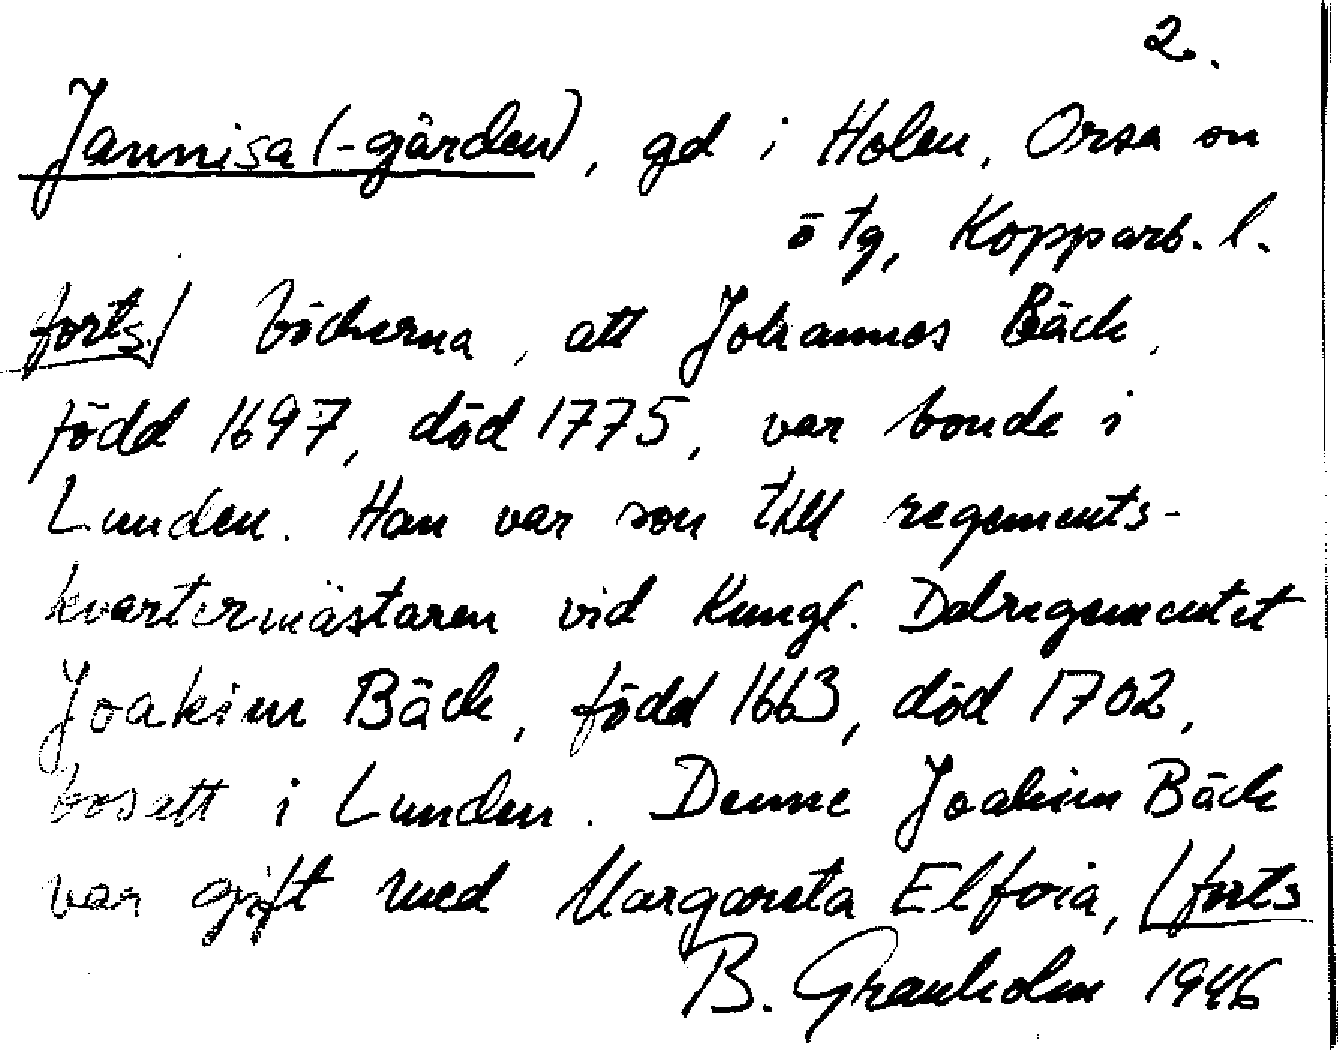 2.
Jannisa (-gården), gd i Holen, Orsa sn
ö tg, Kopparb. l.
forts./ böckerna, att Johannes Bäck,
född 1697, död 1775, var bonde i
Lunden. Han var son till regements-
kvartermästaren vid Kungl. Dalregementet
Joakim Bäck, född 1663, död 1702,
bosatt i Lunden. Denne Joakim Bäck
var gift med Margareta Elfvia, /forts
B. Granholm 1946